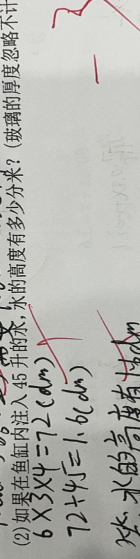 (2)如果在鱼缸内注入45升的水,水的高度有多少分米?(玻璃的厚度忽略不计
6×3×4=72(dm)
72÷45=1.6(dm)
答:水的高度有1.6dm